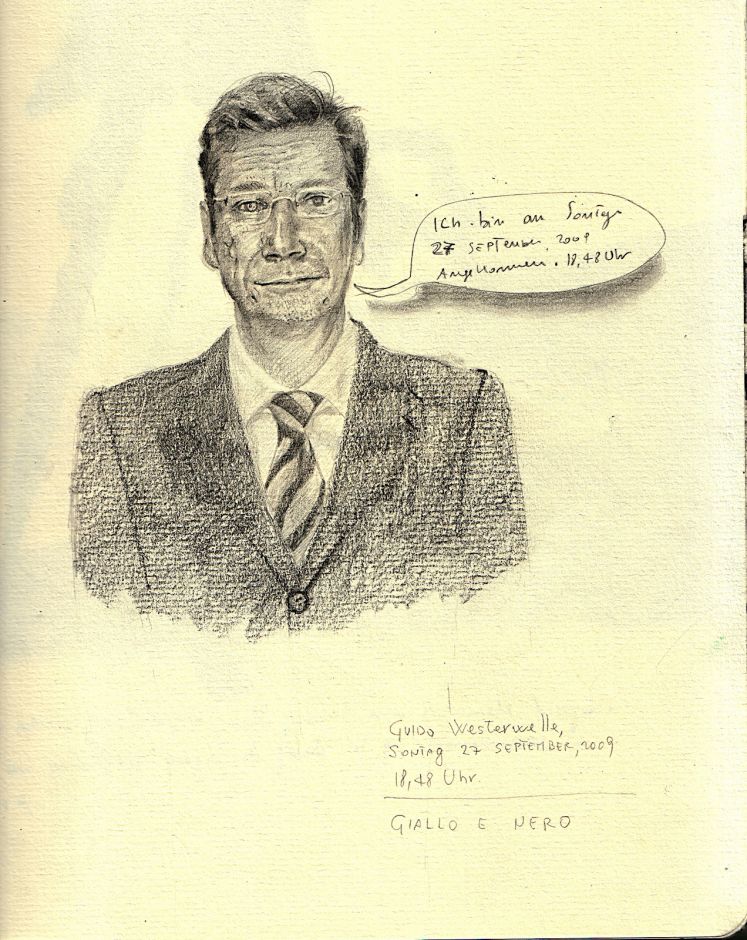 Ich bin an Sontag
27 SEPTEMBER, 2009
Angekommen. 18,48 Uhr
GUIDO Westerwelle,
SONTAG 27 SEPTEMBER, 2009
18,48 Uhr.
GIALLO E NERO